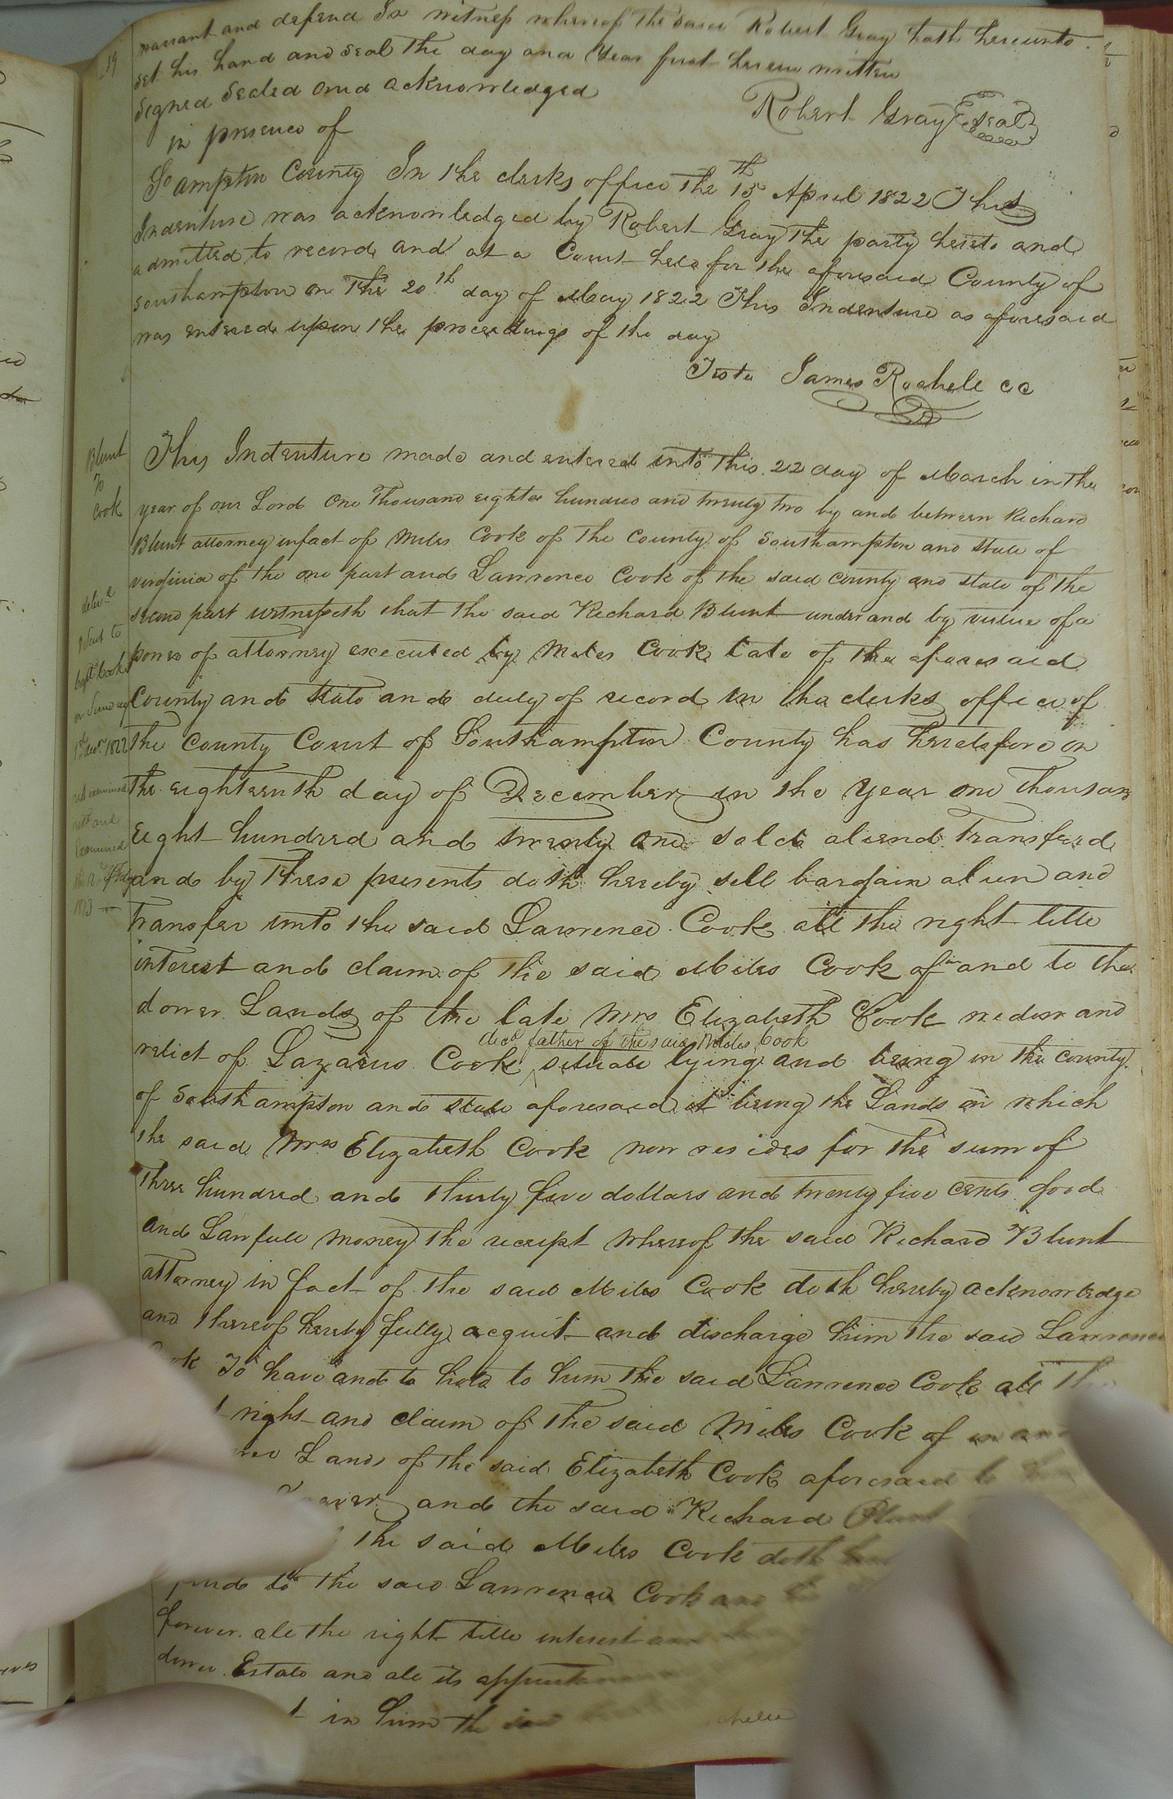 19
warrant and defend In witness whereof the said Robert Gray hath hereunto
set his hand and seal the day and Year first herein written
Signed Sealed and acknowledged
in presence of
Robert Gray Seal
So ampton County In the clerks office the 15th April 1822 This
Indenture was acknowledged by Robert Gray the party hereto and
admitted to record and at a Court held for the aforesaid County of
Southampton on the 20th day of May 1822 This Indenture as aforesaid
was entered upon the proceedings of the day
Teste James Rochell CC
Blunt
To
Cook
This Indenture made and entered into this 22 day of March in the
year of our Lord One Thousand eighteen hundred and twenty two by and between Richard
Blunt attorney infact of Miles Cook of the County of Southampton and State of
virginia of the one part and Lawrence Cook of the said county and state of the
second part witnesseth that the said Richard Blunt under and by virtue of a
power of attorney executed by Miles Cook late of the aforesaid
County and State and duly of record in the clerks office of
the County Court of Southampton County has heretofore on
the eighteenth day of December in the Year one thousand
Eight hundred and twenty one sold aliend Transferd
and by these presents doth hereby sell bargain alien and
Transfer unto the said Lawrence Cook all the right title
interest and claim of the said Miles Cook of and to the
dower Lands of the late Mrs Elizabeth Cook widow and
decd father of the said Miles Cook
relict of Lazarus Cook situate lying and being in the county
of Southampton and state aforesaid it being the Lands on which
the said Mrs Elizabeth Cook now resides for the sum of
Three hundred and thirty five dollars and twenty five cents good
and Lawfull money the receipt whereof the said Richard Blunt
attorney in fact of the said Miles Cook doth hereby acknowledge
and thereof hereby fully acquit and discharge him the said Lawrence
Cook To have and to hold to him the said Lawrence Cook all the
right and claim of the said Miles Cook of in and
Lands of the said Elizabeth Cook aforesaid to
and the said Richard Blunt
the said Miles Cook doth
to the said Lawrence Cook and
forever all the right title interest and
dower Estate and all its
in him the said